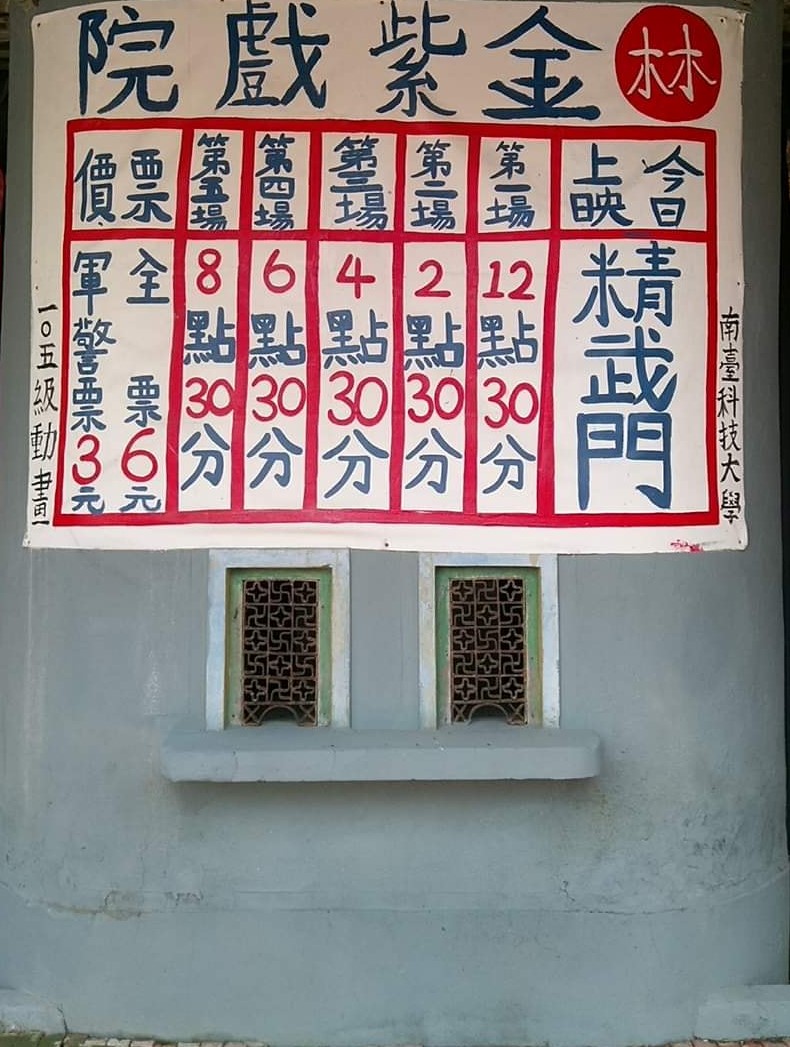 林
金紫戲院
今日上映
精武門
第一場
12點30分
第二場
2點30分
第三場
4點30分
第四場
6點30分
第五場
8點30分
票價
全票6元
軍警票3元
南臺科技大學
一〇五級動畫